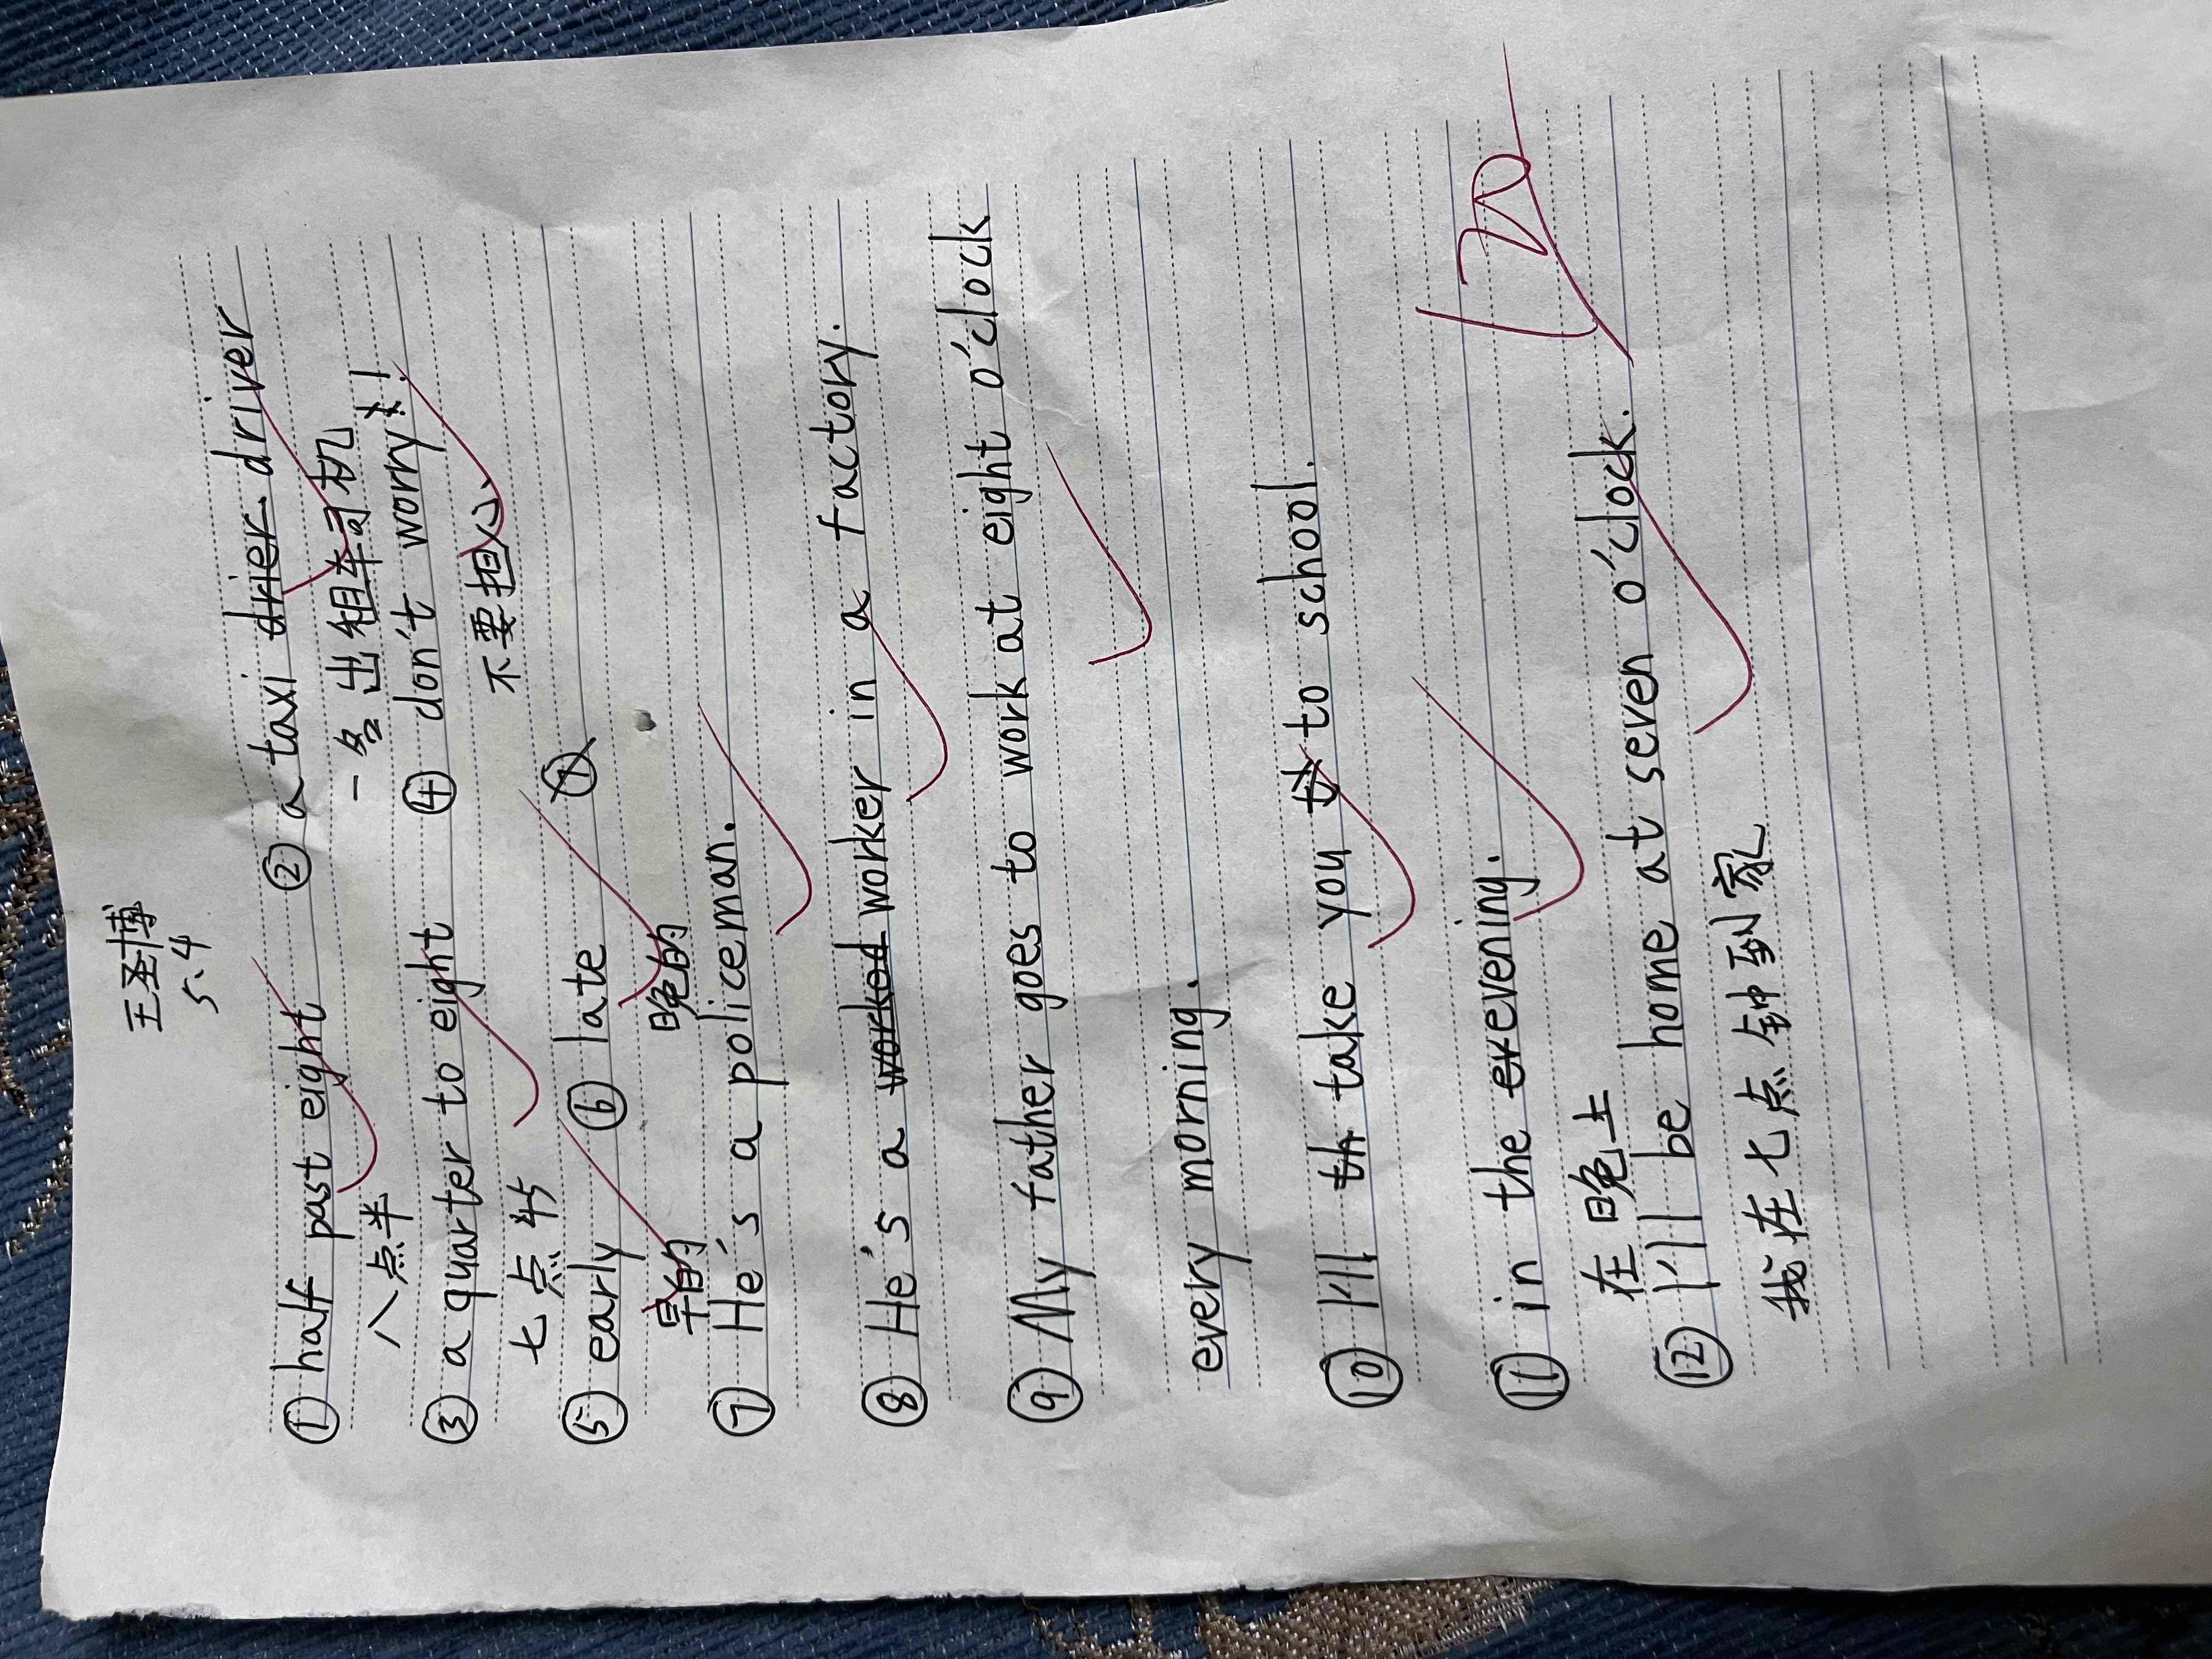 王圣博
5.4
① half past eight ② a taxi drier driver
八点半 一名出租车司机
③ a quarter to eight ④ don't worry!
七点45 不要担心
⑤ early ⑥ late ⑦
早的 晚的
⑦ He's a policeman.
⑧ He's a worked worker in a factory.
⑨ My father goes to work at eight o'clock
every morning.
⑩ I'll th take you to school.
⑪ in the evening.
在晚上
⑫ I'll be home at seven o'clock.
我在七点钟到家